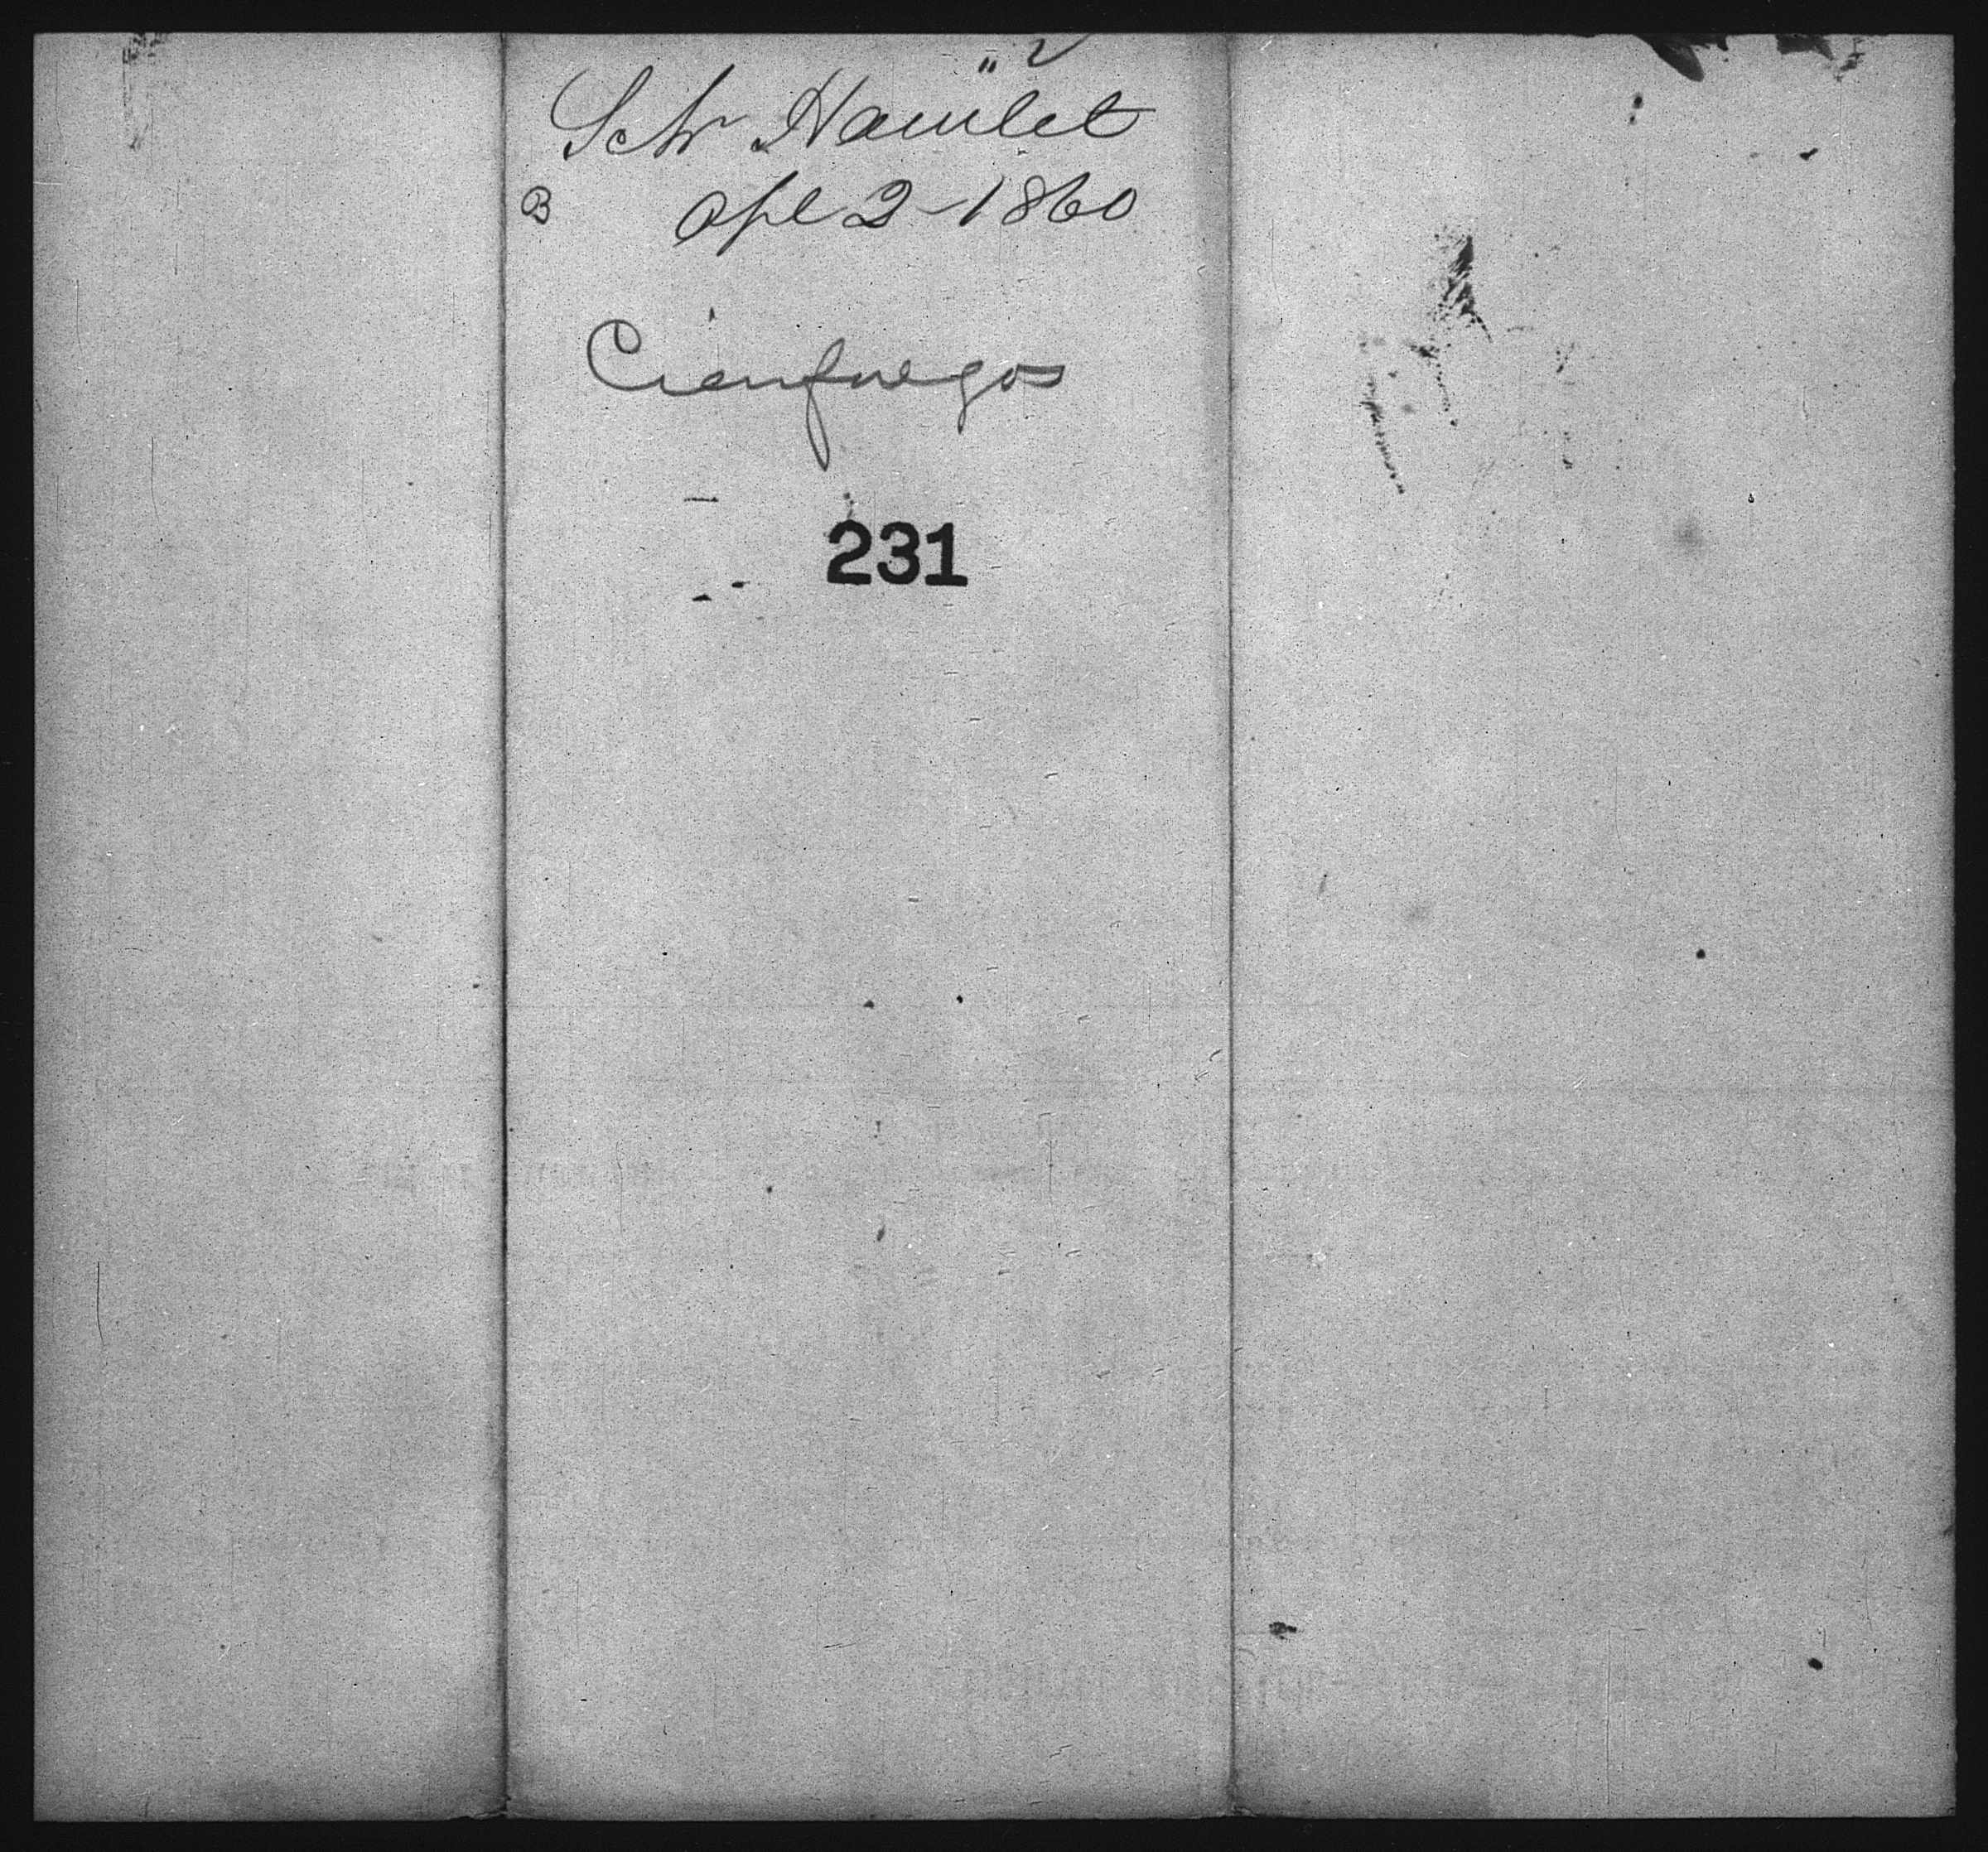 Schr Hamlet
B Apl 2-1860
Cienfuegos
231